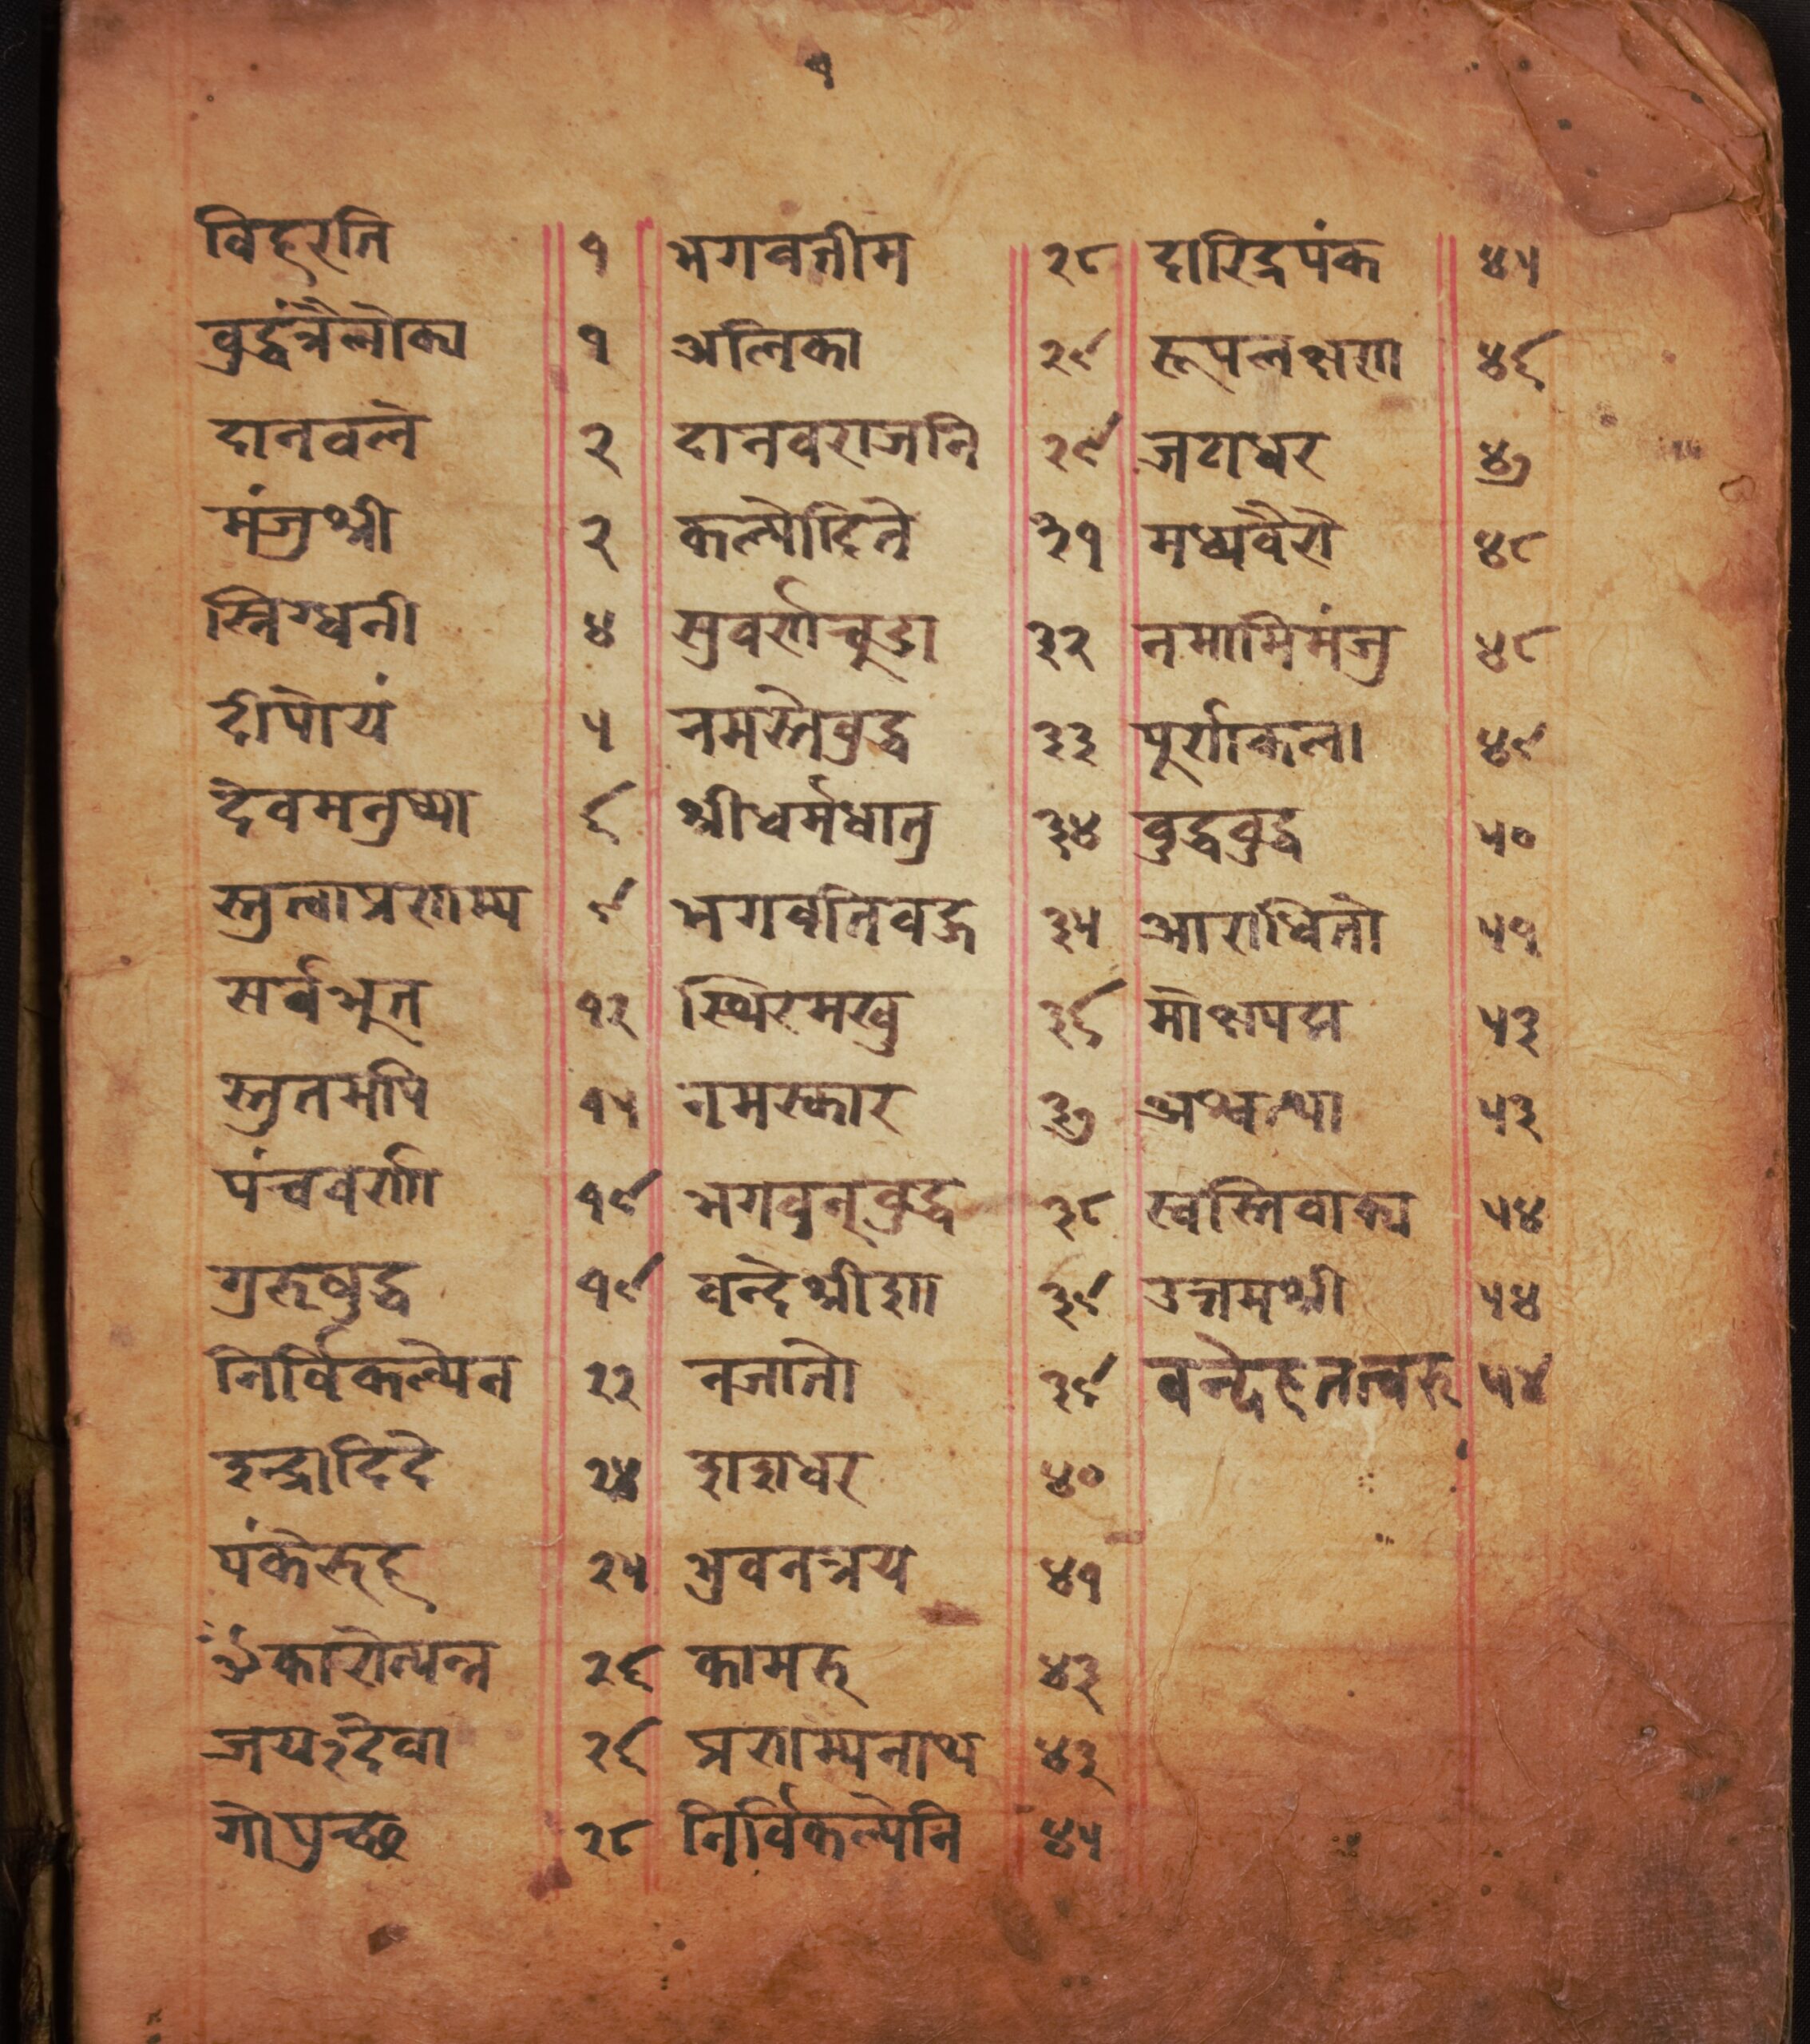 १
विहरति १ भगवतीम २८ दारिद्रपंक ४५
बुद्धंत्रैलोक्य १ अलिका २९ रूपलक्षण ४६
दानवले २ दानवराजनि २९ जटाधर ४७
मंजुश्री २ कल्पोदिते ३१ मध्यवैरो ४८
स्निग्धनी ४ सुवर्णचुडा ३२ नमामिमंजु ४८
दीपोयं ५ नमस्तेबुद्ध ३३ पुर्णाकला ४९
देवमनुष्या ६ श्रीधर्मधातु ३४ बुद्धबुद्ध ५०
स्तुत्वाप्रणम्य ९ भगवतिवज्र ३५ आराधितो ५१
सर्वभुत १२ स्थिरमखु ३६ मोक्षपदा ५३
स्तुतमपि १५ नमस्कार ३७ अश्वत्था ५३
पंचवर्णा १९ भगवन्बुद्ध ३८ स्वस्तिवाक्य ५४
गुरूबुद्ध १९ वन्देश्रीशा ३९ उत्तमश्री ५४
निर्विकल्पेन २२ नजातो ३९ वन्देहतत्वरु ५४
इन्द्रादिदे २४ शशधर ४०
पंकेरूह २५ भुवनत्रय ४१
ॐकारोत्पंन्न २६ कामरू ४३
जय२देवा २६ प्रणम्यनाथ ४३
गोपुच्छ २८ निर्विकल्पेनि ४५